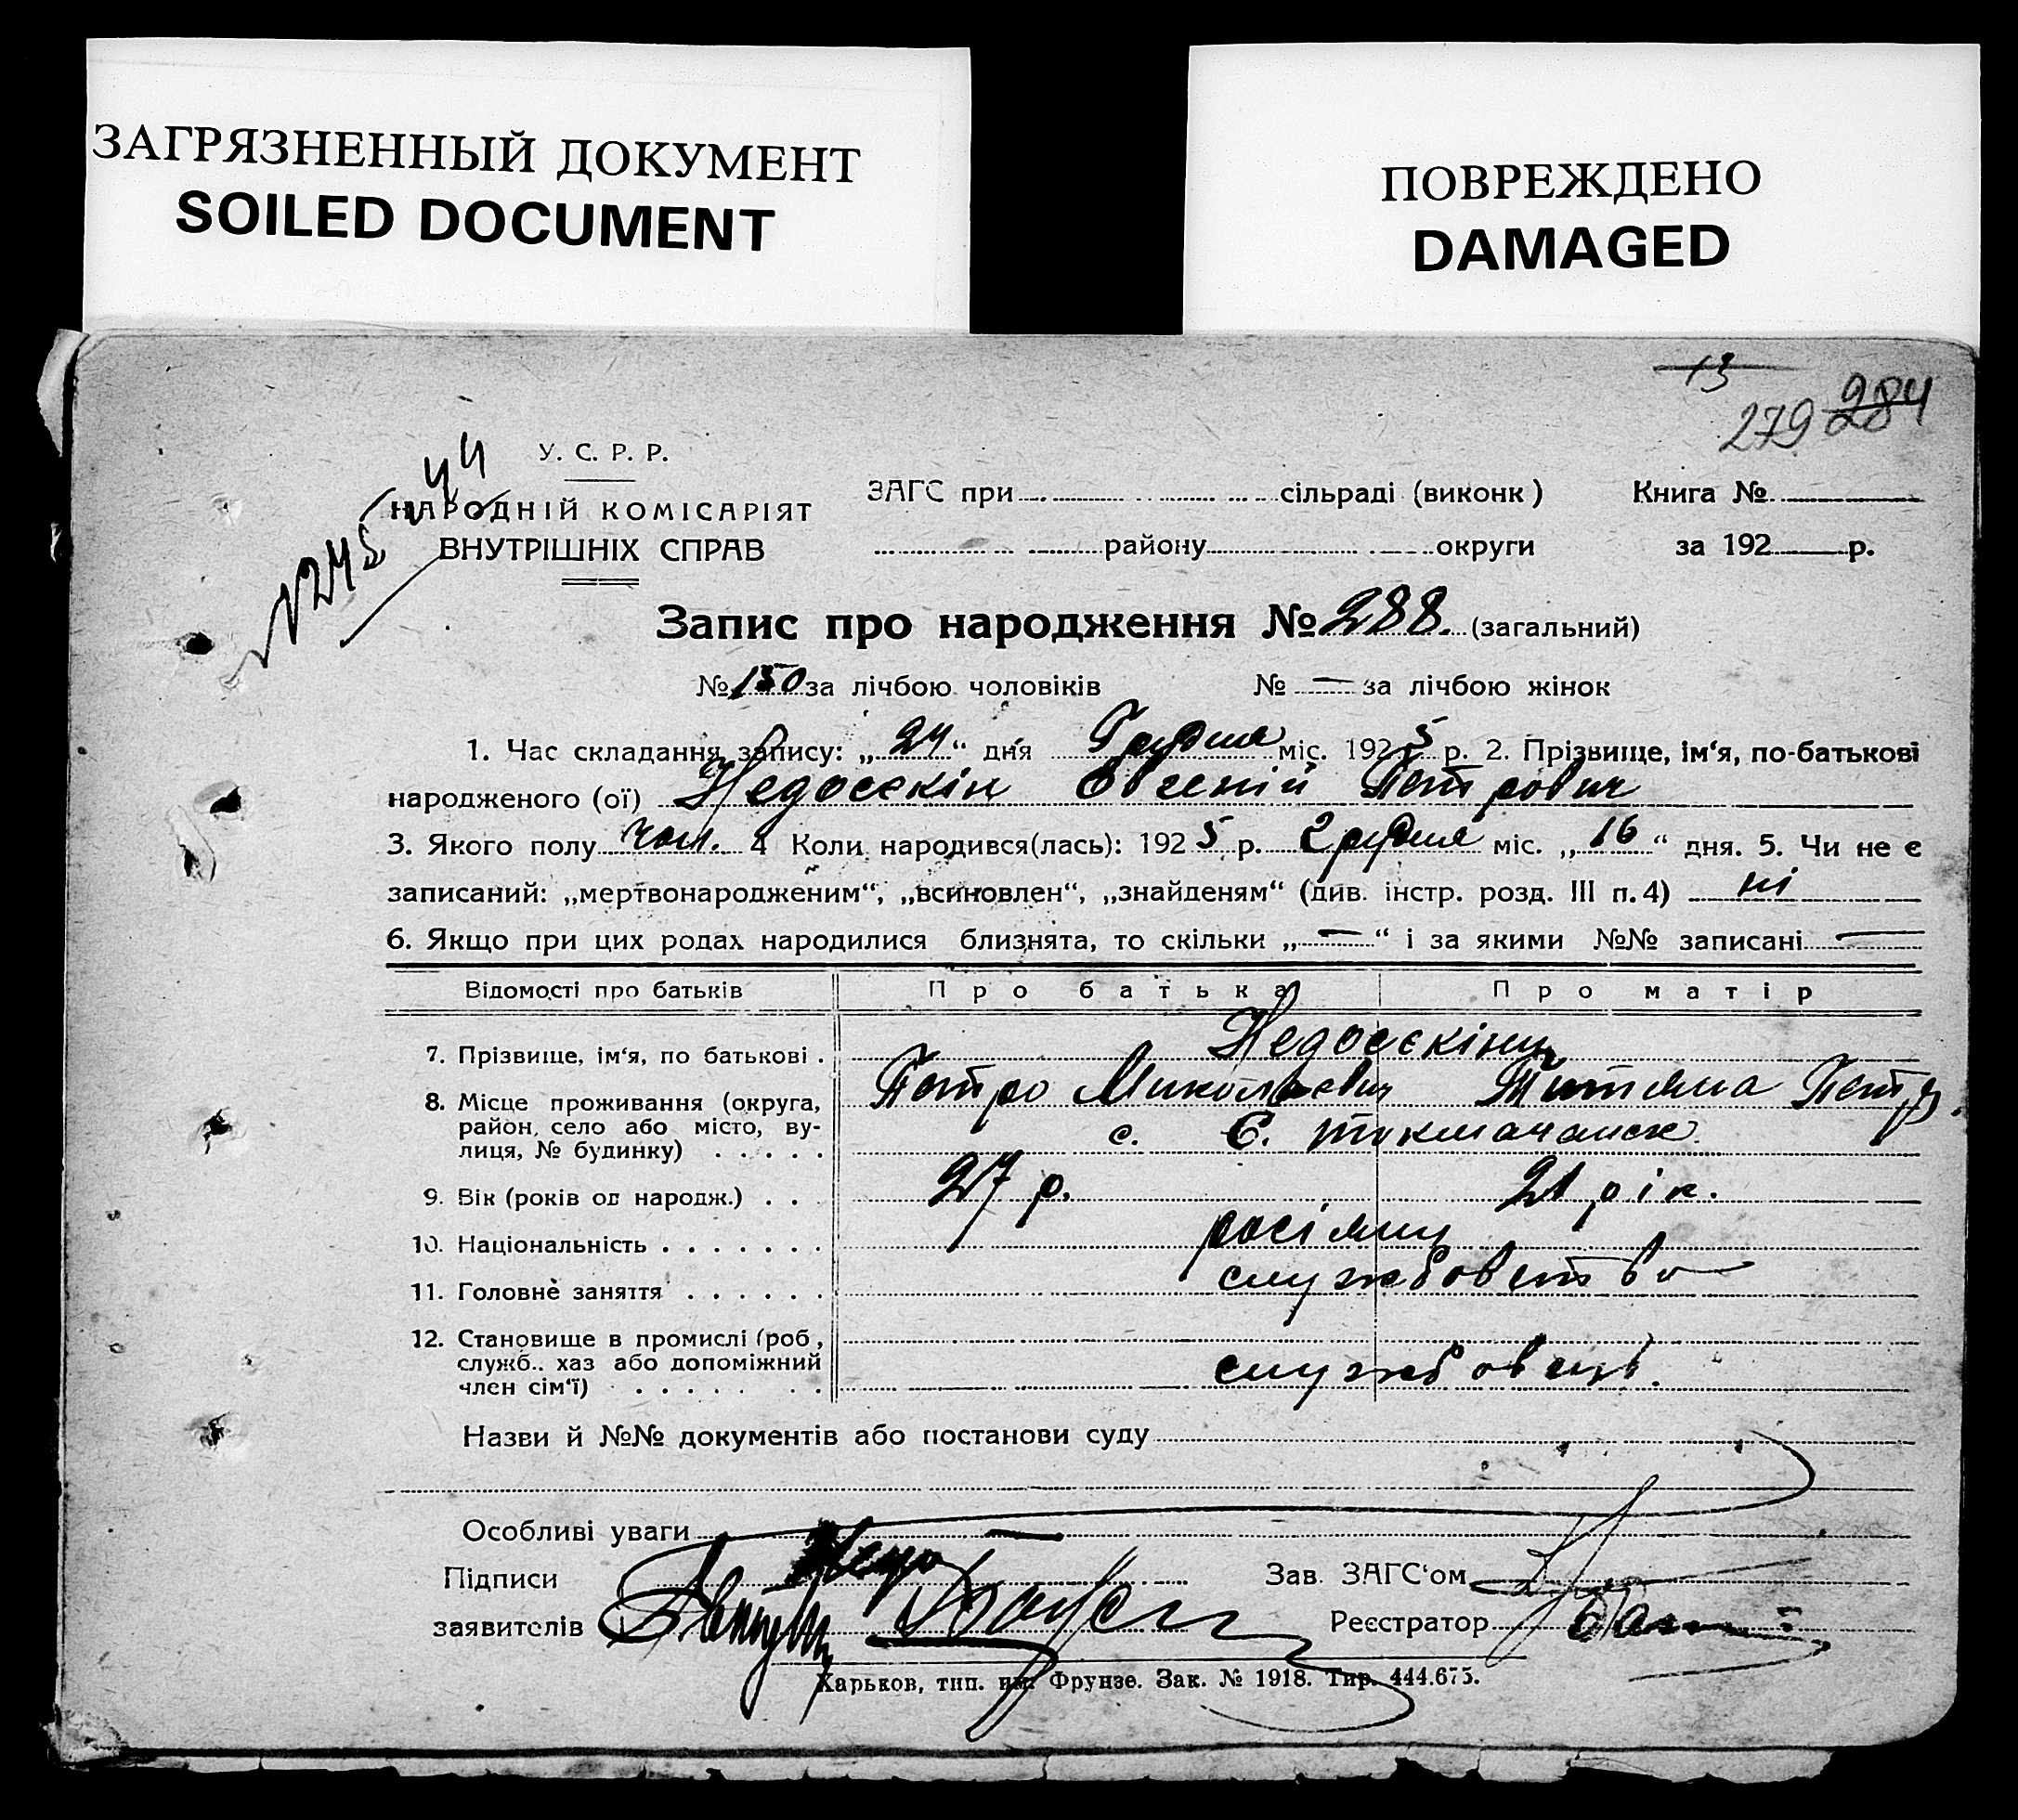 ЗАГРЯЗНЕННЫЙ ДОКУМЕНТ
SOILED DOCUMENT
ПОВРЕЖДЕНО
DAMAGED
13
279 284
У. С. Р. Р.
НАРОДНІЙ КОМІСАРІЯТ
ВНУТРІШНІХ СПРАВ
ЗАГС при сільраді (виконк) Книга №
району округи за 192 р.
Запис про народження № 288. (загальний)
№ 150 за лічбою чоловіків № — за лічбою жінок
1. Час складання запису: „24“ дня Грудня міс. 1925 р. 2. Прізвище, ім‘я, по-батькові
народженого (ої) Недосєкін Євгеній Петрович
3. Якого полу чол. 4 Коли народився(лась): 1925 р. Грудня міс. „16“ дня. 5. Чи не є
записаний: „мертвонародженим“, „всиновлен“, „знайденям“ (див. інстр. розд. III п. 4) ні
6. Якщо при цих родах народилися близнята, то скільки „—“ і за якими №№ записані —
Відомості про батьків Про батька Про матір
7. Прізвище, ім‘я, по батькові . Недосєкіни
Петро Миколаєвич Титяна Петр.
8. Місце проживання (округа,
район, село або місто, ву-
лиця, № будинку) . . . . . с. Є. токмачанск
9. Вік (років од народж.) . . . 27 р. 21 рік.
10. Національність . . . . . . . росіяни
11. Головнѐ заняття . . . . . . службовство
12. Становище в промислі (роб,
служб.. хаз або допоміжний
член сім‘ї) . . . . . . . службовці.
Назви й №№ документів або постанови суду
Особливі уваги —
Підписи
заявителів
Зав. ЗАГС‘ом
Реєстратор
Харьков, тип. им. Фрунзе. Зак. № 1918. Тир. 444.675.